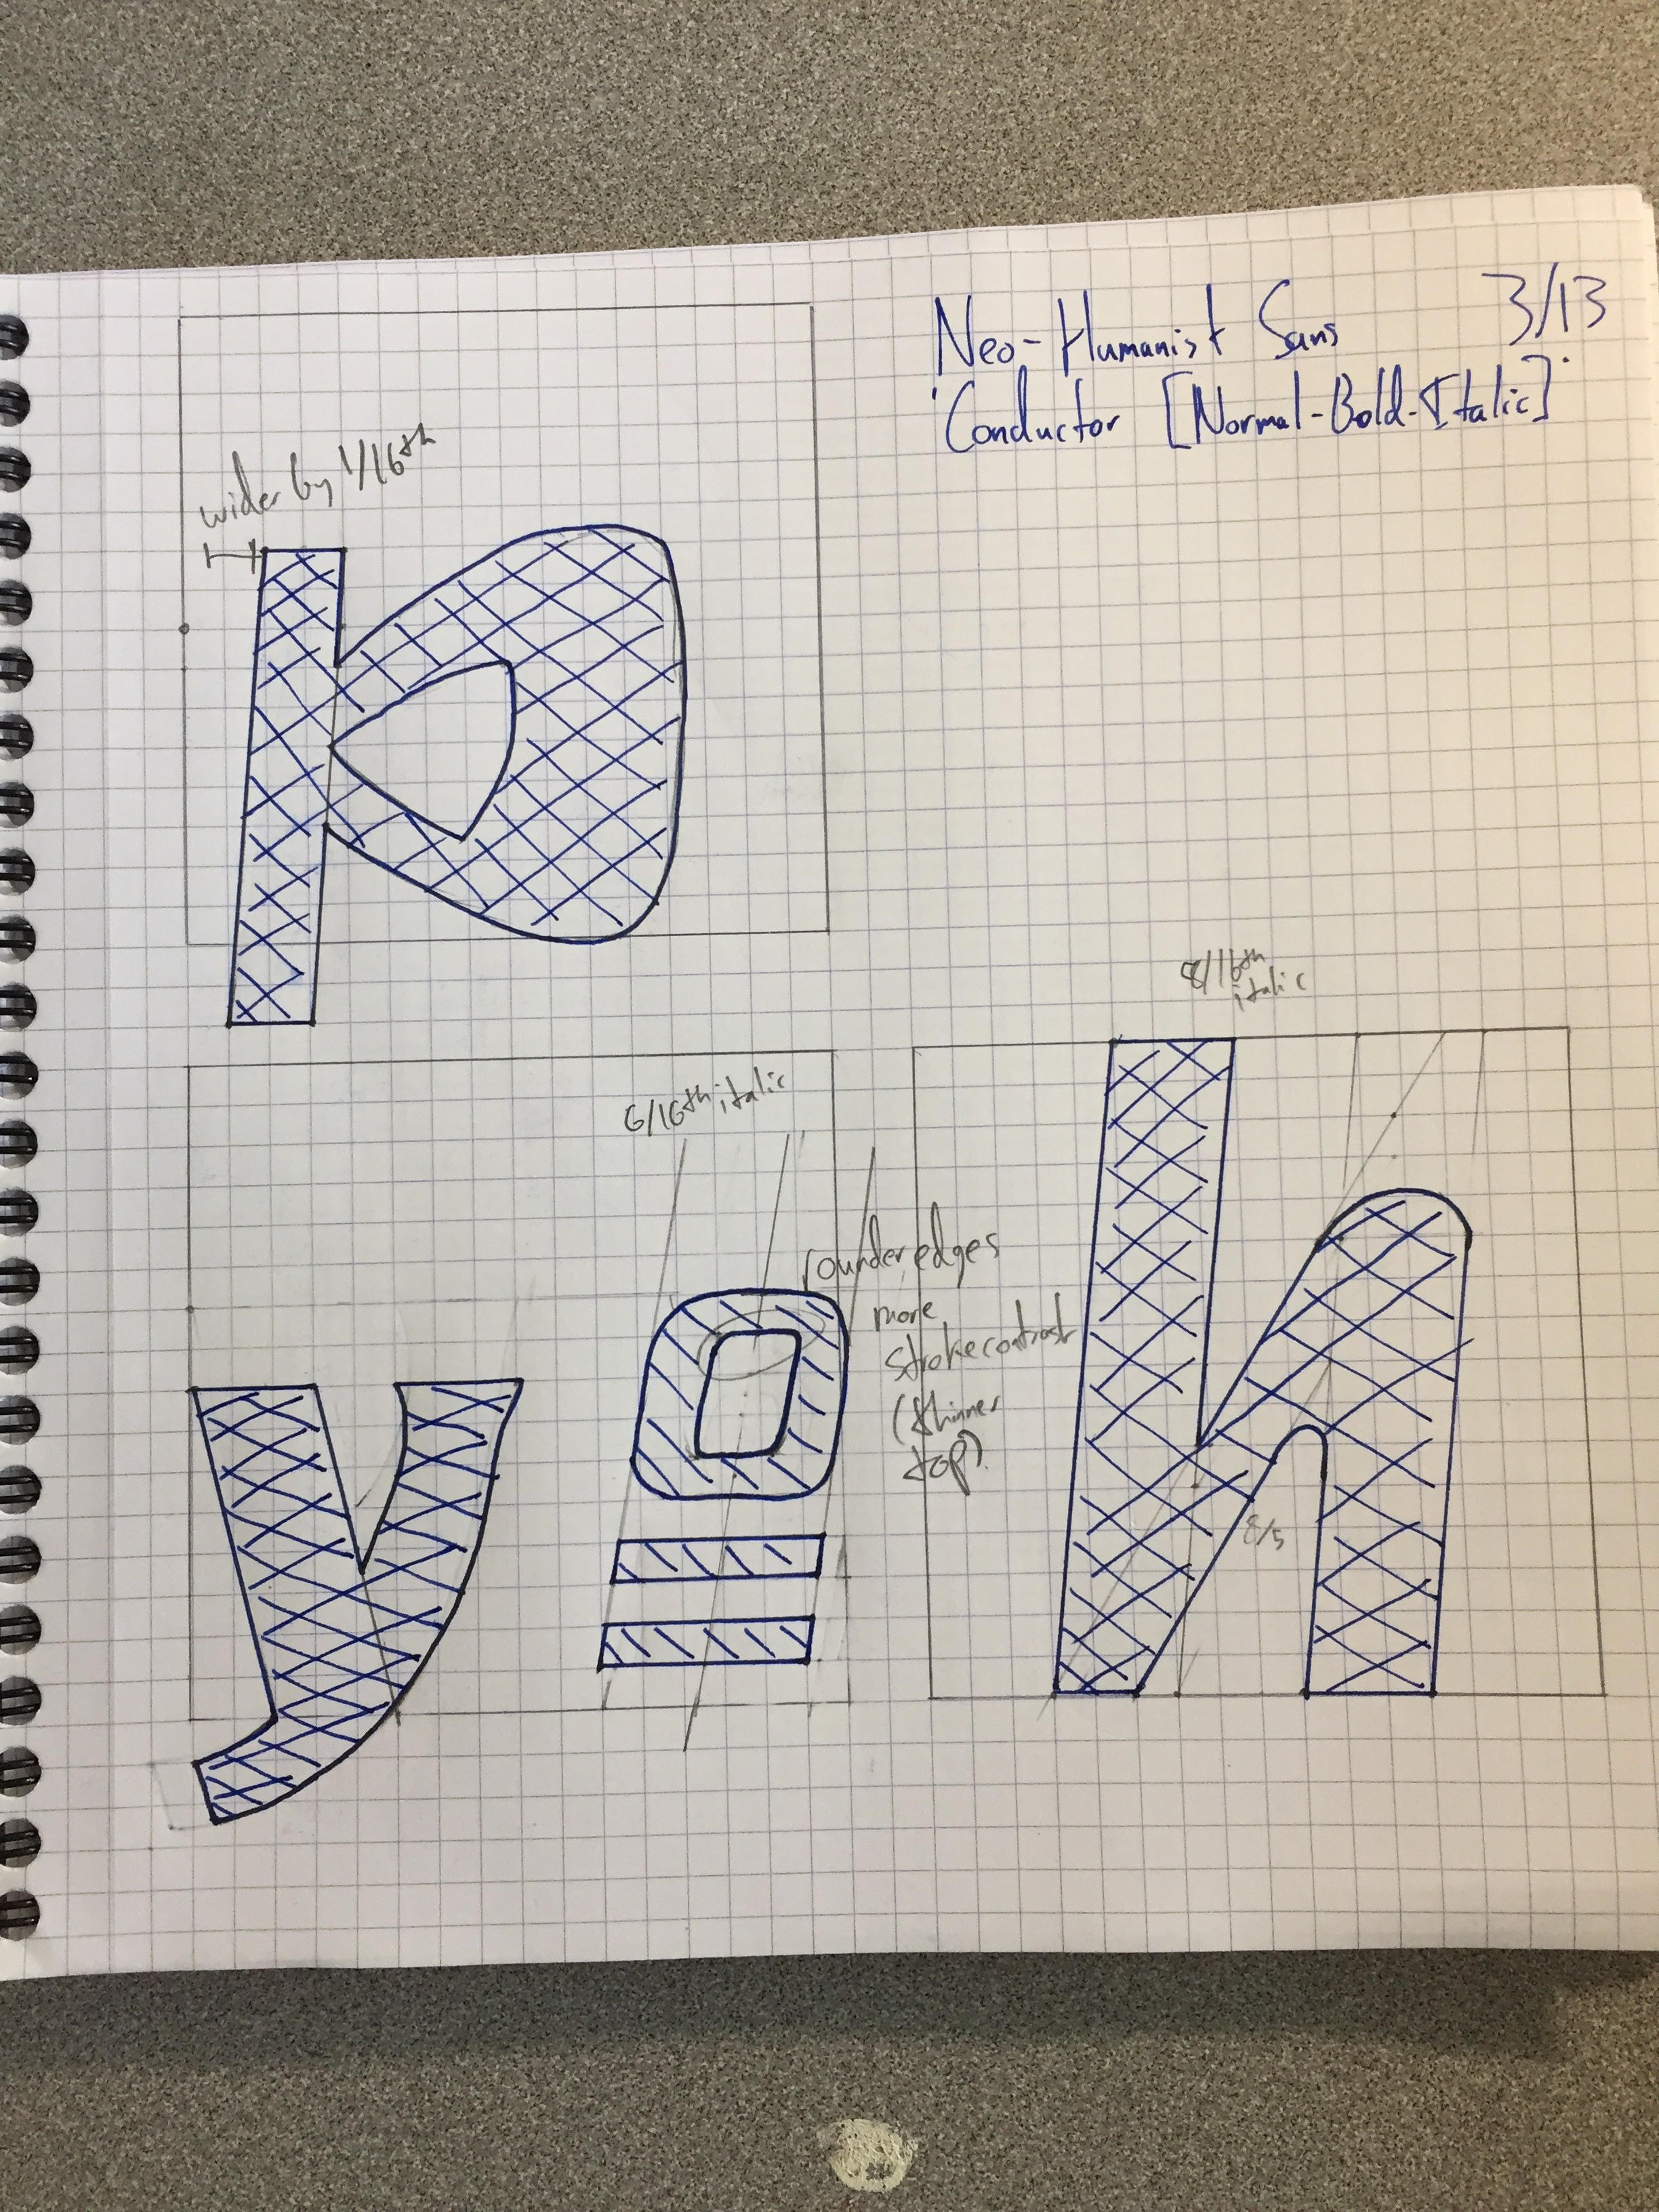 Neo-Humanist Sans 3/13
'Conductor [Normal-Bold-Italic]'
wider by 1/16th
p
8/16th
italic
6/16th italic
rounder edges
more
stroke contrast
(thinner
top)
8/5
y º h